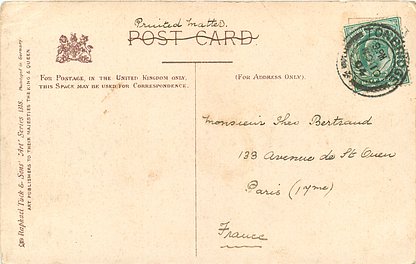 Printed Matter.
POST CARD
FOR POSTAGE, IN THE UNITED KINGDOM ONLY,
THIS SPACE MAY BE USED FOR CORRESPONDENCE.
(FOR ADDRESS ONLY).
TONBRIDGE
Monsieur Theo Bertrand
133 Avenue de St Ouen
Paris (17me)
France
Raphael Tuck & Sons' "Art" Series 1318.
ART PUBLISHERS TO THEIR MAJESTIES THE KING & QUEEN